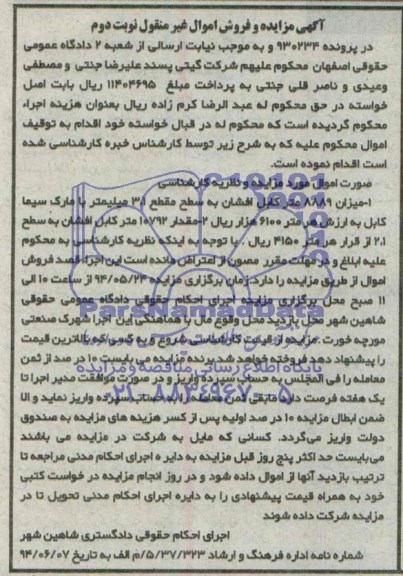 آگهی مزایده و فروش اموال غیر منقول نوبت دوم
در پرونده ۹۳۰۲۳۴ و به موجب نیابت ارسالی از شعبه ۲ دادگاه عمومی
حقوقی اصفهان محکوم علیهم شرکت گیتی پسند علیرضا جنتی و مصطفی
وعیدی و ناصر قلی جنتی به پرداخت مبلغ ۱۱۴۰۴۶۹۵ ریال بابت اصل
خواسته در حق محکوم له عبد الرضا کرم زاده ریال بعنوان هزینه اجراء
محکوم گردیده است که محکوم له در قبال خواسته خود اقدام به توقیف
اموال محکوم علیه که به شرح زیر توسط کارشناس خبره کارشناسی شده
است اقدام نموده است.
صورت اموال مورد مزایده و نظریه کارشناسی
۱-میزان ۸۶۸۹ متر کابل افشان به سطح مقطع ۳.۱ میلیمتر با مارک سیما
کابل به ارزش هر متر ۶۱۰۰ هزار ریال ۲-مقدار ۱۰۷۹۲ متر کابل افشان به سطح
۲.۱ از قرار هر متر ۴۱۵۰ ریال . با توجه به اینکه نظریه کارشناسی به محکوم
علیه ابلاغ و در مهلت مقرر مصون از اعتراض مانده است این اجرا قصد فروش
اموال از طریق مزایده را دارد.زمان برگزاری مزایده ۹۴/۰۵/۲۴ از ساعت ۱۰ الی
۱۱ صبح محل برگزاری مزایده اجرای احکام حقوقی دادگاه عمومی حقوقی
شاهین شهر محل بازدید محل وقوع مال با هماهنگی این اجرا شهرک صنعتی
مورچه خورت . مزایده از قیمت کارشناسی شروع و به کسی که بالاترین قیمت
را پیشنهاد دهد فروخته خواهد شد.برنده مزایده می بایست ۱۰ در صد از ثمن
معامله را فی المجلس به حساب سپرده واریز و در صورت موافقت مدیر اجرا تا
یک هفته فرصت دارد مابقی ثمن معامله را به حساب سپرده واریز نماید و الا
ضمن ابطال مزایده ۱۰ در صد اولیه پس از کسر هزینه های مزایده به صندوق
دولت واریز می‌گردد. کسانی که مایل به شرکت در مزایده می باشند
می‌بایست حد اکثر پنج روز قبل مزایده به دایر ه اجرای احکام مدنی مراجعه تا
ترتیب بازدید آنها از اموال داده شود و در روز انجام مزایده در خواست کتبی
خود به همراه قیمت پیشنهادی را به دایره اجرای احکام مدنی تحویل تا در
مزایده شرکت داده شوند
اجرای احکام حقوقی دادگستری شاهین شهر
شماره نامه اداره فرهنگ و ارشاد ۵/۳۷/۳۲۳/م الف به تاریخ ۹۴/۰۶/۰۷
ParsNamadData
پایگاه اطلاع رسانی مناقصه و مزایده
۰۲۱-۸۸۳۴۹۶۷۰-۵